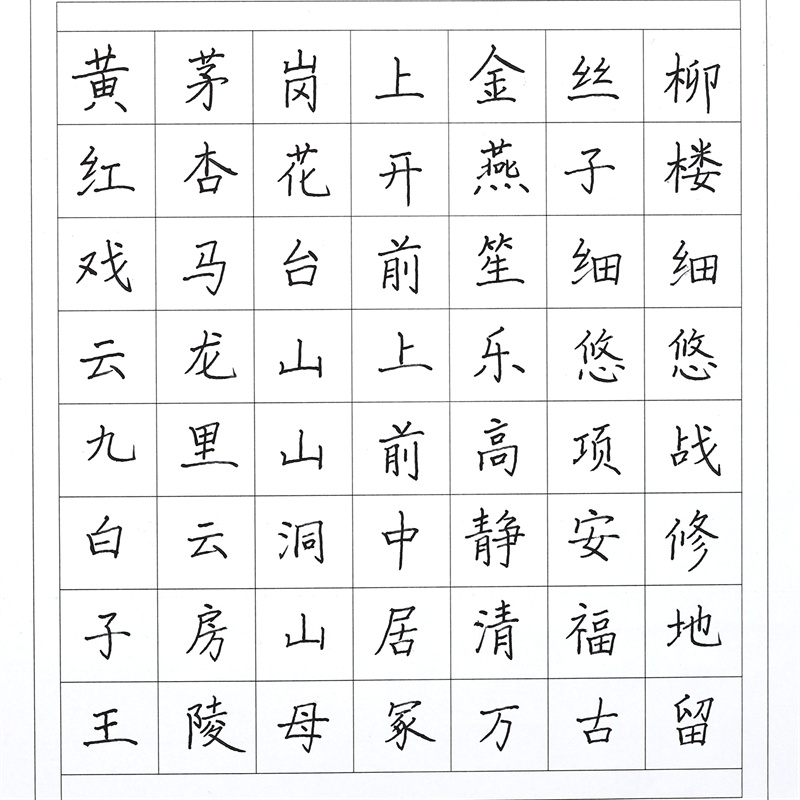 黄茅岗上金丝柳
红杏花开燕子楼
戏马台前笙细细
云龙山上乐悠悠
九里山前高项战
白云洞中静安修
子房山居清福地
王陵母冢万古留